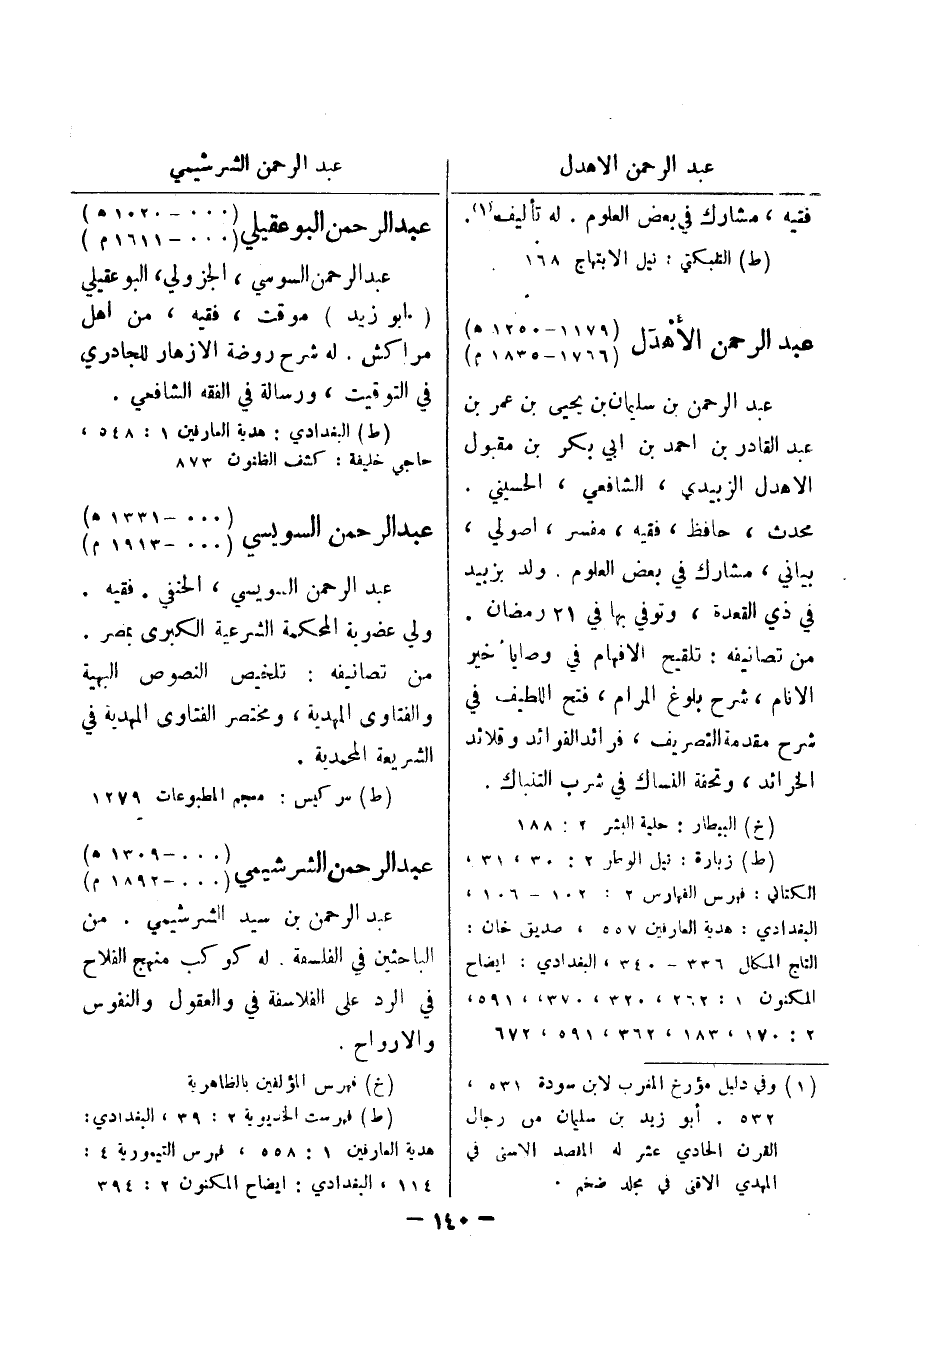 عبد الرحمن الاهدل
فقيه ، مشارك في بعض العلوم . له تأليف (١) .
(ط) التنبكتي : نيل الابتهاج ١٦٨
عبد الرحمن الأَهْدَل (١١٧٩-١٢٥٠ ه)
(١٧٦٦-١٨٣٥ م)
عبد الرحمن بن سليمان بن يحيى بن عمر بن
عبد القادر بن احمد بن ابي بكر بن مقبول
الاهدل الزبيدي ، الشافعي ، الحسيني .
محدث ، حافظ ، فقيه ، مفسر ، اصولي ،
بياني ، مشارك في بعض العلوم . ولد بزبيد
في ذي القعدة ، وتوفي بها في ٢١ رمضان .
من تصانيفه : تلقيح الافهام في وصايا خير
الانام ، شرح بلوغ المرام ، فتح اللطيف في
شرح مقدمة التصريف ، فرائد الفوائد وقلائد
الخرائد ، وتحفة النساك في شرب التنباك .
(خ) البيطار : حلية البشر ٢ : ١٨٨
(ط) زبارة : نيل الوطر ٢ : ٣٠ ، ٣١ ،
الكتاني : فهرس الفهارس ٢ : ١٠٢ - ١٠٦ ،
البغدادي : هدية العارفين ٥٥٧ ، صديق خان :
التاج المكلل ٣٣٦ - ٣٤٠ ، البغدادي : ايضاح
المكنون ١ : ٢٦٢ ، ٣٢٠ ، ٣٧٠ ، ٥٩١ ،
٢ : ١٧٠ ، ١٨٣ ، ٣٦٢ ، ٥٩١ ، ٦٧٢
(١) وفي دليل مؤرخ المغرب لابن سودة ٥٣١ ،
٥٣٢ . أبو زيد بن سليمان من رجال
القرن الحادي عشر له المقصد الاسنى في
المهدي الاقنى في مجلد ضخم .
عبد الرحمن الشرشيمي
عبد الرحمن البوعقيلي (٠٠٠ - ١٠٢٠ ه)
(٠٠٠ - ١٦١١ م)
عبد الرحمن السوسي ، الجزولي ، البوعقيلي
( ابو زيد ) موقت ، فقيه ، من اهل
مراكش . له شرح روضة الازهار للجادري
في التوقيت ، ورسالة في الفقه الشافعي .
(ط) البغدادي : هدية العارفين ١ : ٥٤٨ ،
حاجي خليفة : كشف الظنون ٨٧٣
عبد الرحمن السويسي (٠٠٠ - ١٣٣١ ه)
(٠٠٠ - ١٩١٣ م)
عبد الرحمن السويسي ، الحنفي . فقيه .
ولي عضوية المحكمة الشرعية الكبرى بمصر .
من تصانيفه : تلخيص النصوص البهية
والفتاوى المهدية ، ومختصر الفتاوى المهدية في
الشريعة المحمدية .
(ط) سركيس : معجم المطبوعات ١٢٧٩
عبد الرحمن الشرشيمي (٠٠٠ - ١٣٠٩ ه)
(٠٠٠ - ١٨٩٢ م)
عبد الرحمن بن سيد الشرشيمي . من
الباحثين في الفلسفة . له كوكب منهج الفلاح
في الرد على الفلاسفة في والعقول والنفوس
والارواح .
(خ) فهرس المؤلفين بالظاهرية
(ط) فهرست الخديوية ٢ : ٣٩ ، البغدادي :
هدية العارفين ١ : ٥٥٨ ، فهرس التيمورية ٤ :
١١٤ ، البغدادي : ايضاح المكنون ٢ : ٣٩٤
- ١٤٠ -